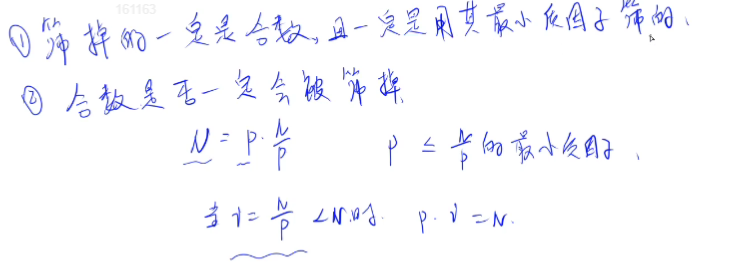 161163
① 筛掉的一定是合数,且一定是用其最小质因子筛的.
② 合数是否一定会被筛掉
N = p · N/p    p ≤ N/p 的最小质因子,
当 i = N/p < N 时.  p · i = N.